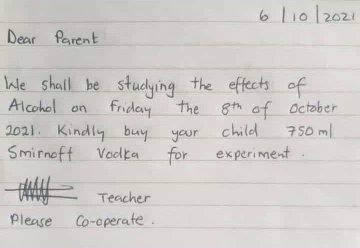 6/10/2021
Dear Parent
We shall be studying the effects of
Alcohol on Friday the 8th of October
2021. Kindly buy your child 750ml
Smirnoff Vodka for experiment.
Teacher
Please Co-operate.